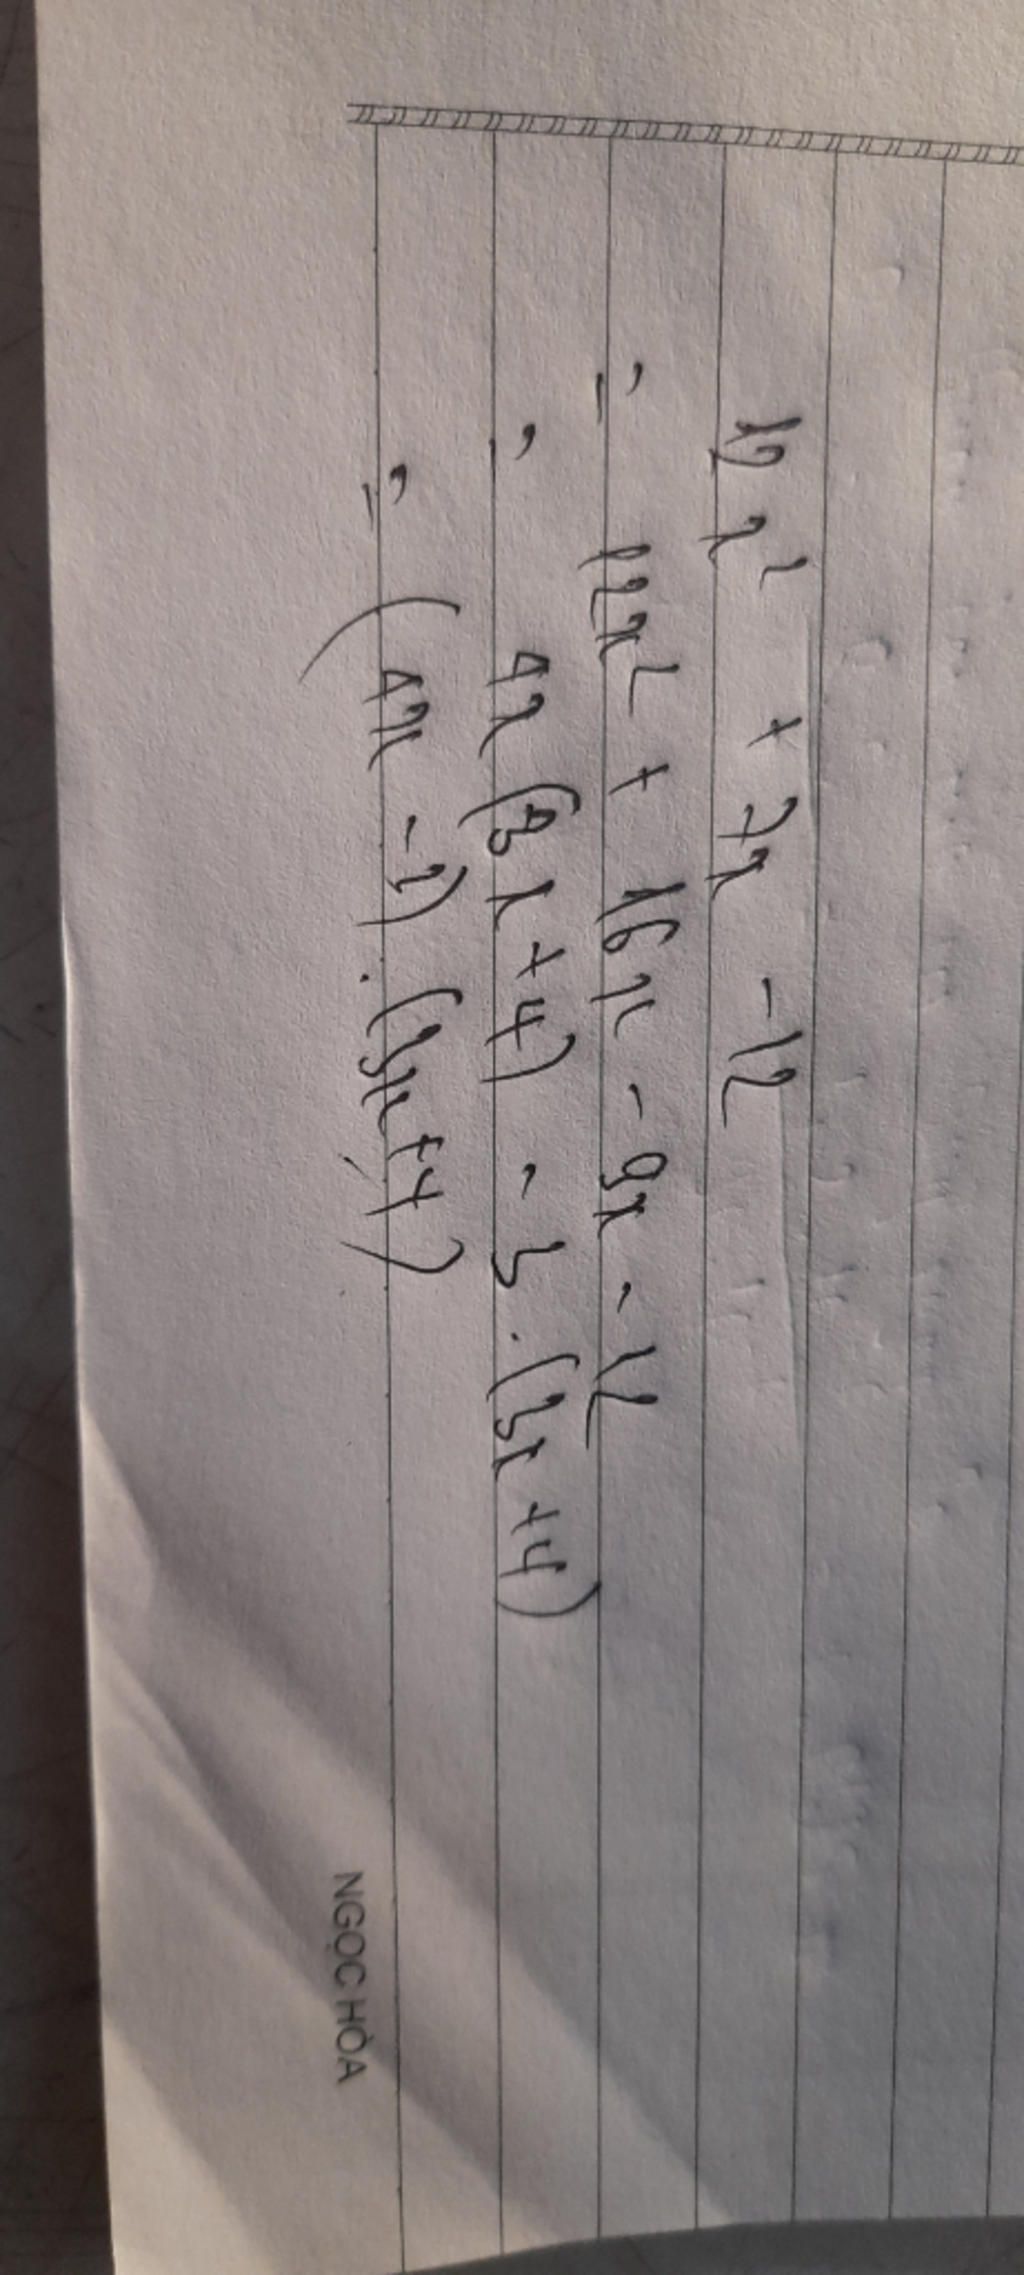 12x² + 7x - 12
= 12x² + 16x - 9x - 12
= 4x (3x + 4) - 3 . (3x + 4)
= (4x - 3) . (3x + 4)
NGỌC HÒA